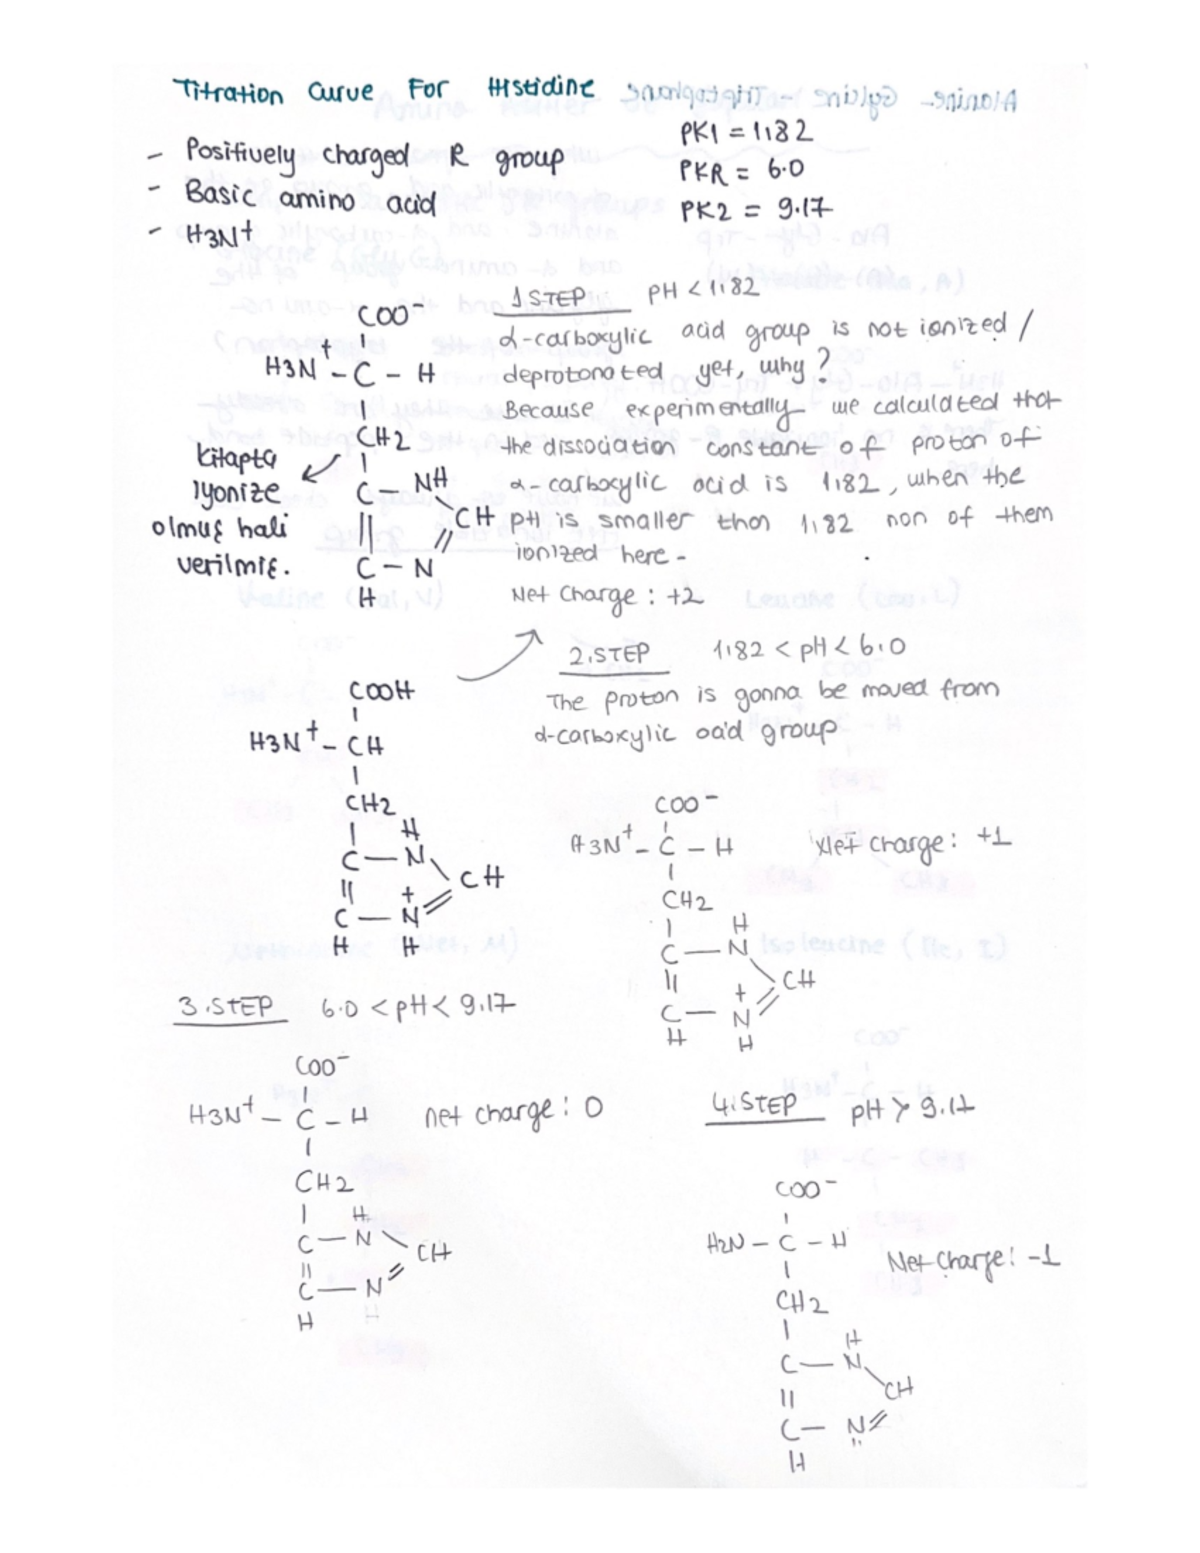 Titration Curve For Histidine
- Positively charged R group
- Basic amino acid
- H3N+
PK1 = 1,82
PKR = 6.0
PK2 = 9.17
COO-
H3N+ - C - H
CH2
C - NH
CH
C - N
H
Kitapta
iyonize
olmuş hali
verilmiş.
1.STEP pH < 1,82
α-carboxylic acid group is not ionized /
deprotonated yet, why?
Because experimentally we calculated that
the dissociation constant of proton of
α-carboxylic acid is 1,82, when the
pH is smaller than 1,82 non of them
ionized here.
Net Charge : +2
COOH
H3N+ - CH
CH2
H
C - N
CH
+
C - N
H H
2.STEP 1,82 < pH < 6.0
The proton is gonna be moved from
α-carboxylic acid group
COO-
H3N+ - C - H
Net charge: +1
CH2
H
C - N
CH
+
C - N
H H
3.STEP 6.0 < pH < 9.17
COO-
H3N+ - C - H
net charge: 0
CH2
H
C - N
CH
C - N
H
4.STEP pH > 9.17
COO-
H2N - C - H
Net charge: -1
CH2
H
C - N
CH
C - N
H